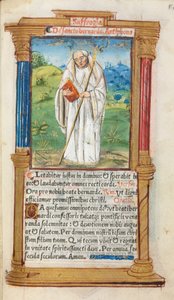 Suffragia
De sancto bernardo. Antiphona
Letabitur iustus in domino & sperabit in
eo & laudabuntur omnes recti corde.
Ora pro nobis beate bernarde. Ut digni
efficiamur promissionibus christi. Oratio
Da quesumus omnipotens deus ut beati
bernardi confessoris tui atque pontificis vene
randa solennitas & devotionem nobis auge
at & salutem. Per dominum nostrum iesum chri
stum filium tuum. Qui tecum vivit & regnat
in unitate spiritus sancti deus. Per omnia se
cula seculorum. Amen.